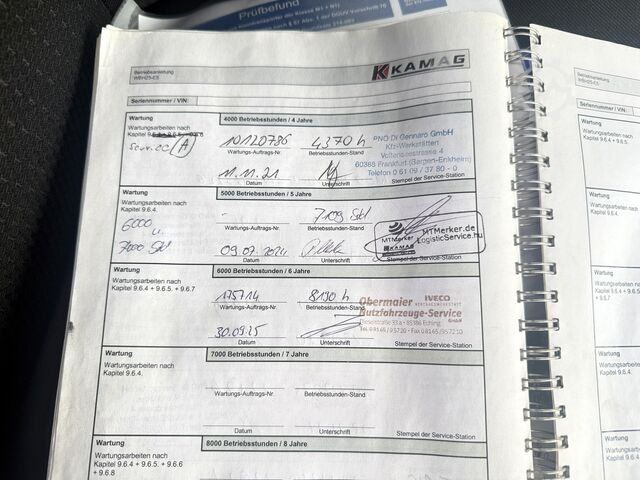 Prüfbefund
Betriebsanleitung
WBH25-E5
KAMAG
Seriennummer / VIN:
Wartung
4000 Betriebsstunden / 4 Jahre
Wartungsarbeiten nach
Kapitel
A
10120786
4370 h
Wartungs-Auftrags-Nr.
Betriebsstunden-Stand
11.11.21
Datum
Unterschrift
Stempel der Service-Station
PNO Di Gennaro GmbH
Kfz-Werkstätten
60388 Frankfurt (Bergen-Enkheim)
Telefon 0 61 09 / 37 80 - 0
Wartung
5000 Betriebsstunden / 5 Jahre
Wartungsarbeiten nach
Kapitel 9.6.4.
6000
u.
7000 Std
-
7109 Std
Wartungs-Auftrags-Nr.
Betriebsstunden-Stand
09.02.2024
Datum
Unterschrift
Stempel der Service-Station
MTMerker
KAMAG
MTMerker.de
LogisticService.hu
Wartung
6000 Betriebsstunden / 6 Jahre
Wartungsarbeiten nach
Kapitel 9.6.4 + 9.6.5. + 9.6.7
175714
8190 h
Wartungs-Auftrags-Nr.
Betriebsstunden-Stand
30.09.25
Datum
Unterschrift
Stempel der Service-Station
Obermaier
IVECO
Nutzfahrzeuge-Service
GmbH
Wartung
7000 Betriebsstunden / 7 Jahre
Wartungsarbeiten nach
Kapitel 9.6.4.
Wartungs-Auftrags-Nr.
Betriebsstunden-Stand
Datum
Unterschrift
Stempel der Service-Station
Wartung
8000 Betriebsstunden / 8 Jahre
Wartungsarbeiten nach
Kapitel 9.6.4 + 9.6.5. + 9.6.6
+ 9.6.8
Betriebsanleitung
WBH25-E5
Seriennummer / VIN:
Wartung
Wartungsarbeiten nach
Kapitel 9.6.4 + 9.6.5.
Wartung
Wartungsarbeiten nach
Kapitel 9.6.4.
Wartung
Wartungsarbeiten nach
Wartung
Wartungsarbeiten nach
Kapitel 9.6.4.
Wartung